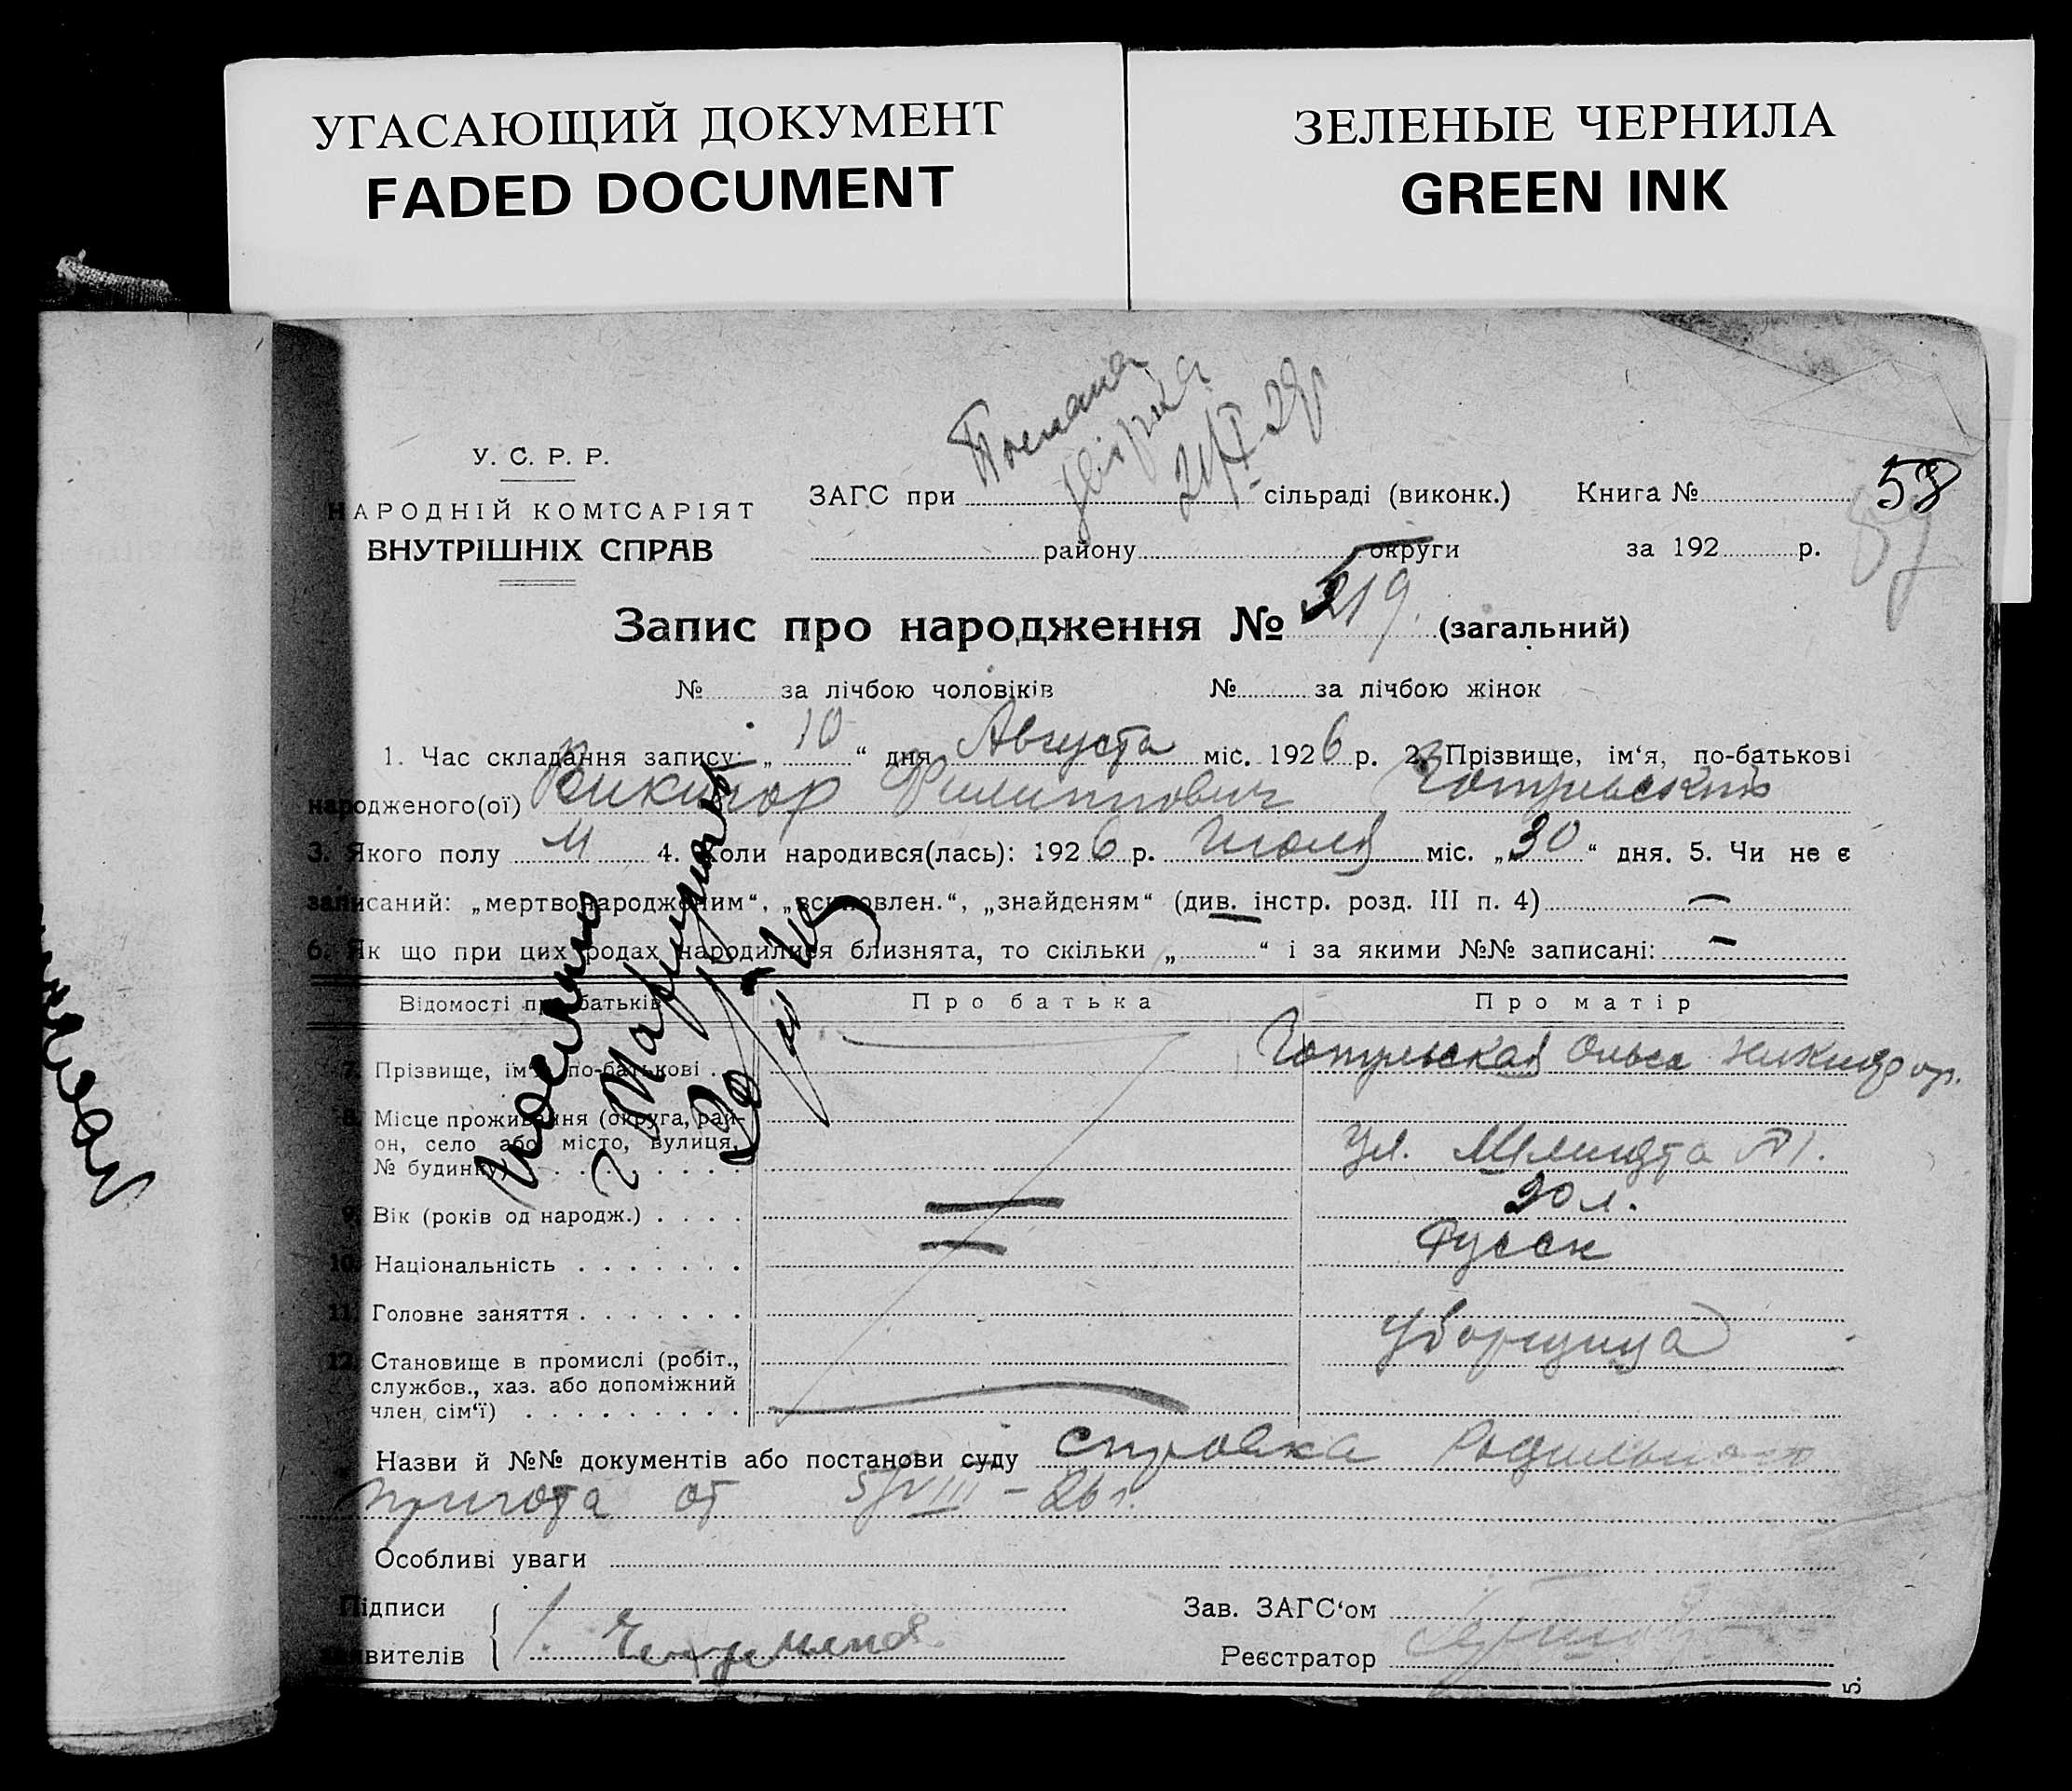 УГАСАЮЩИЙ ДОКУМЕНТ
FADED DOCUMENT
ЗЕЛЕНЫЕ ЧЕРНИЛА
GREEN INK
У. С. Р. Р.
НАРОДНІЙ КОМІСАРІЯТ
ВНУТРІШНІХ СПРАВ
21/I 28р
ЗАГС при сільраді (виконк.) Книга № 58
району округи за 192 р.
57
Запис про народження № 219. (загальний)
№ за лічбою чоловіків № за лічбою жінок
1. Час складання запису: „ 10 “ дня Августа міс. 1926 р. 2. Прізвище, ім‘я, по-батькові
народженого(ої) Виктор Филиппович
3. Якого полу М 4. Коли народився(лась): 1926 р. Июля міс. „ 30 “ дня. 5. Чи не є
записаний: „мертвонародженим“, „всиновлен.“, „знайденям“ (див. інстр. розд. III п. 4) —
6. Як що при цих родах народилися близнята, то скільки „ “ і за якими №№ записані: —
Відомості про батьків Про батька Про матір
7. Прізвище, ім‘я, по-батькові . . Ольга
8. Місце проживання (округа, рай-
он, село або місто, вулиця,
№ будинку) . . . . . . . . Ул. Шмидта №1.
9. Вік (років од народж.) . . . . — 20 л.
10. Національність . . . . . . . — Русск
11. Головне заняття . . . . . . . Уборщица
12. Становище в промислі (робіт.,
службов., хаз. або допоміжний
член сім‘ї) . . . . . . . . .
Назви й №№ документів або постанови суду Справка Родильного
приюта от 5/VIII – 26 г.
Особливі уваги
Підписи Зав. ЗАГС‘ом
заявителів Реєстратор
5.